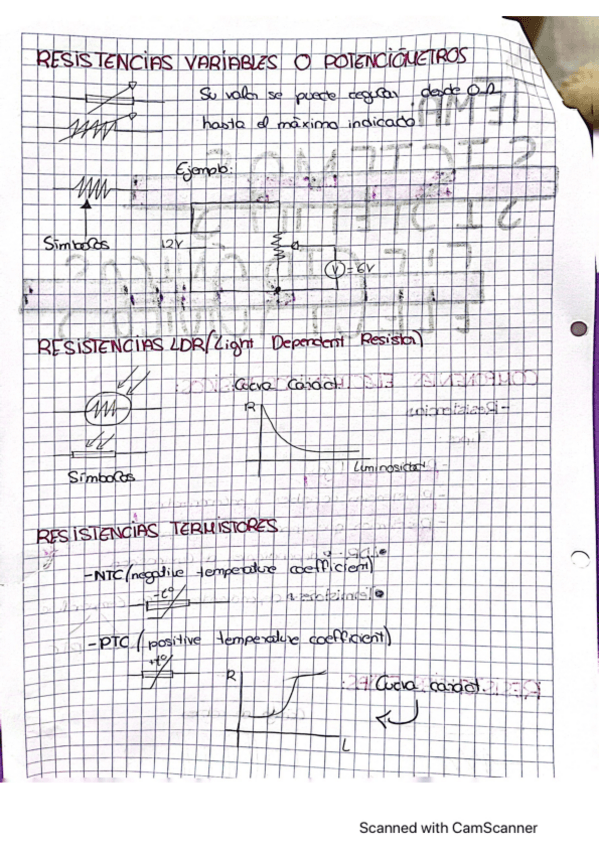 RESISTENCIAS VARIABLES O POTENCIÓMETROS
Su valor se puede regular desde 0Ω
hasta el máximo indicado.
Ejemplo:
Símbolos
12V
V =6V
RESISTENCIAS LDR (Light Dependent Resistor)
Curva Caráct.
R
Luminosidad
Símbolos
RESISTENCIAS TERMISTORES
-NTC (negative temperature coefficient)
-tº
-PTC (positive temperature coefficient)
+tº
R
Curva caráct.
L
Scanned with CamScanner